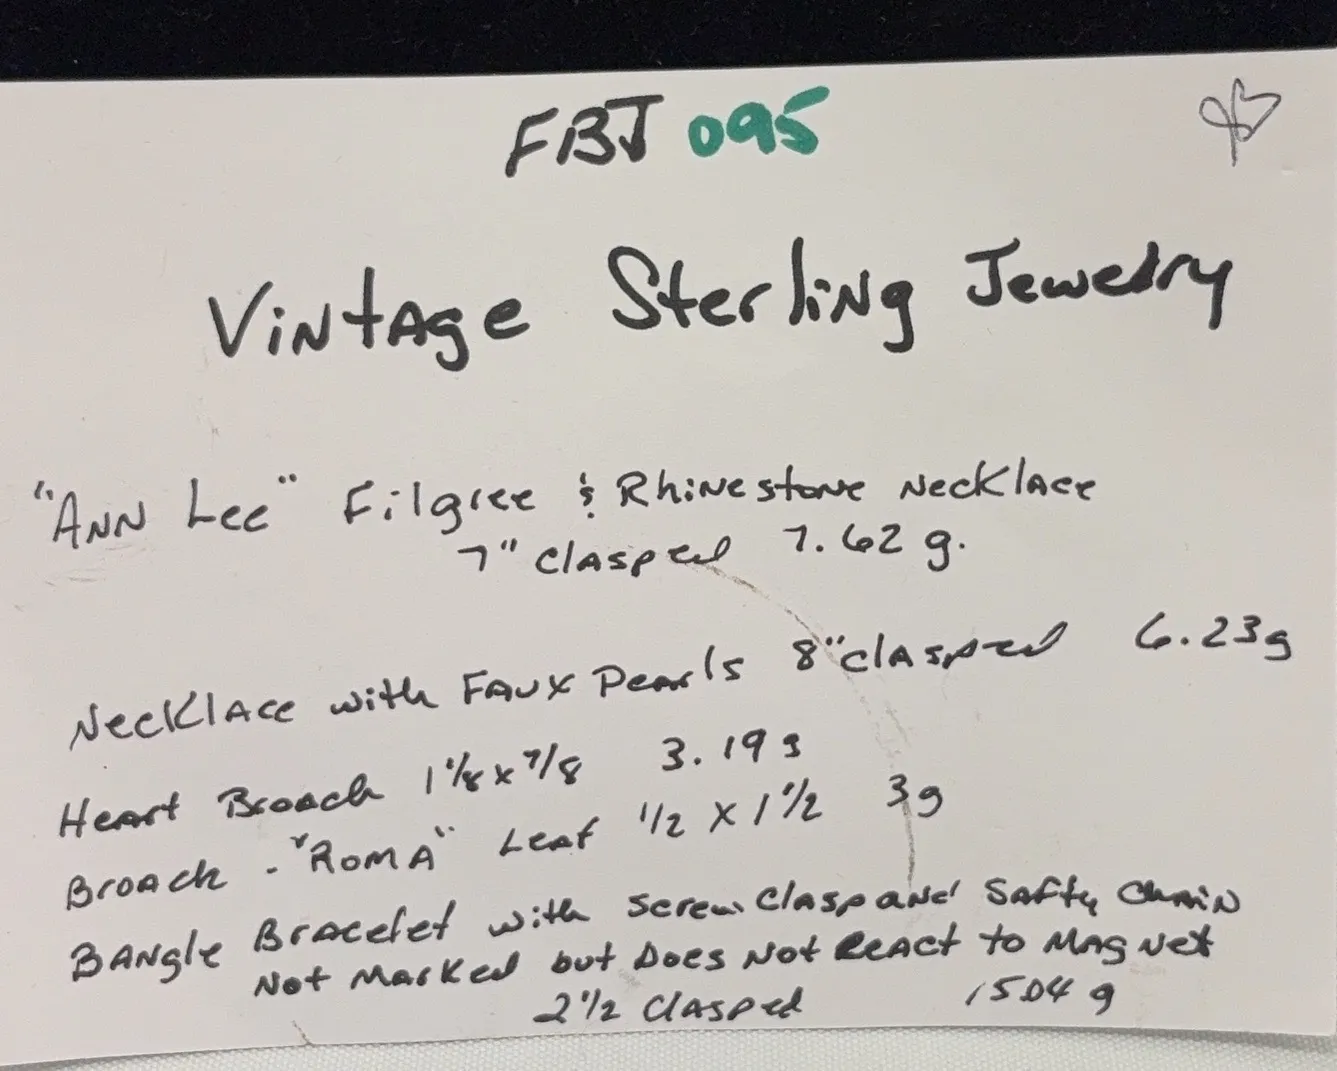 FBJ 095
Vintage Sterling Jewelry
"Ann Lee" Filgree & Rhinestone Necklace
7" Clasped 7.62 g.
Necklace with Faux Pearls 8" clasped 6.23g
Heart Broach 1 1/8 x 7/8 3.19 g
Broach - "Roma" Leaf 1/2 x 1 1/2 3g
Bangle Bracelet with Screw Clasp and Safty Chain
Not Marked but Does Not React to Magnet
2 1/2 Clasped 15.04 g